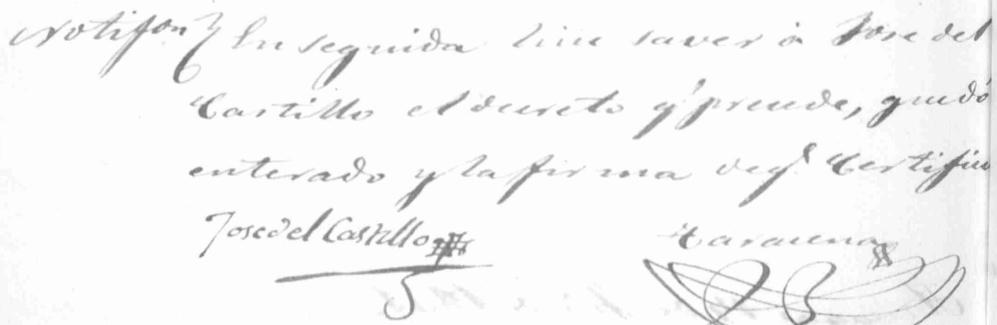 Notifon En seguida hice saver á Jose del
Castillo el decreto q.e precede, quedó
enterado y la firma de q.e Certifico
Jose del Castillo Taracena